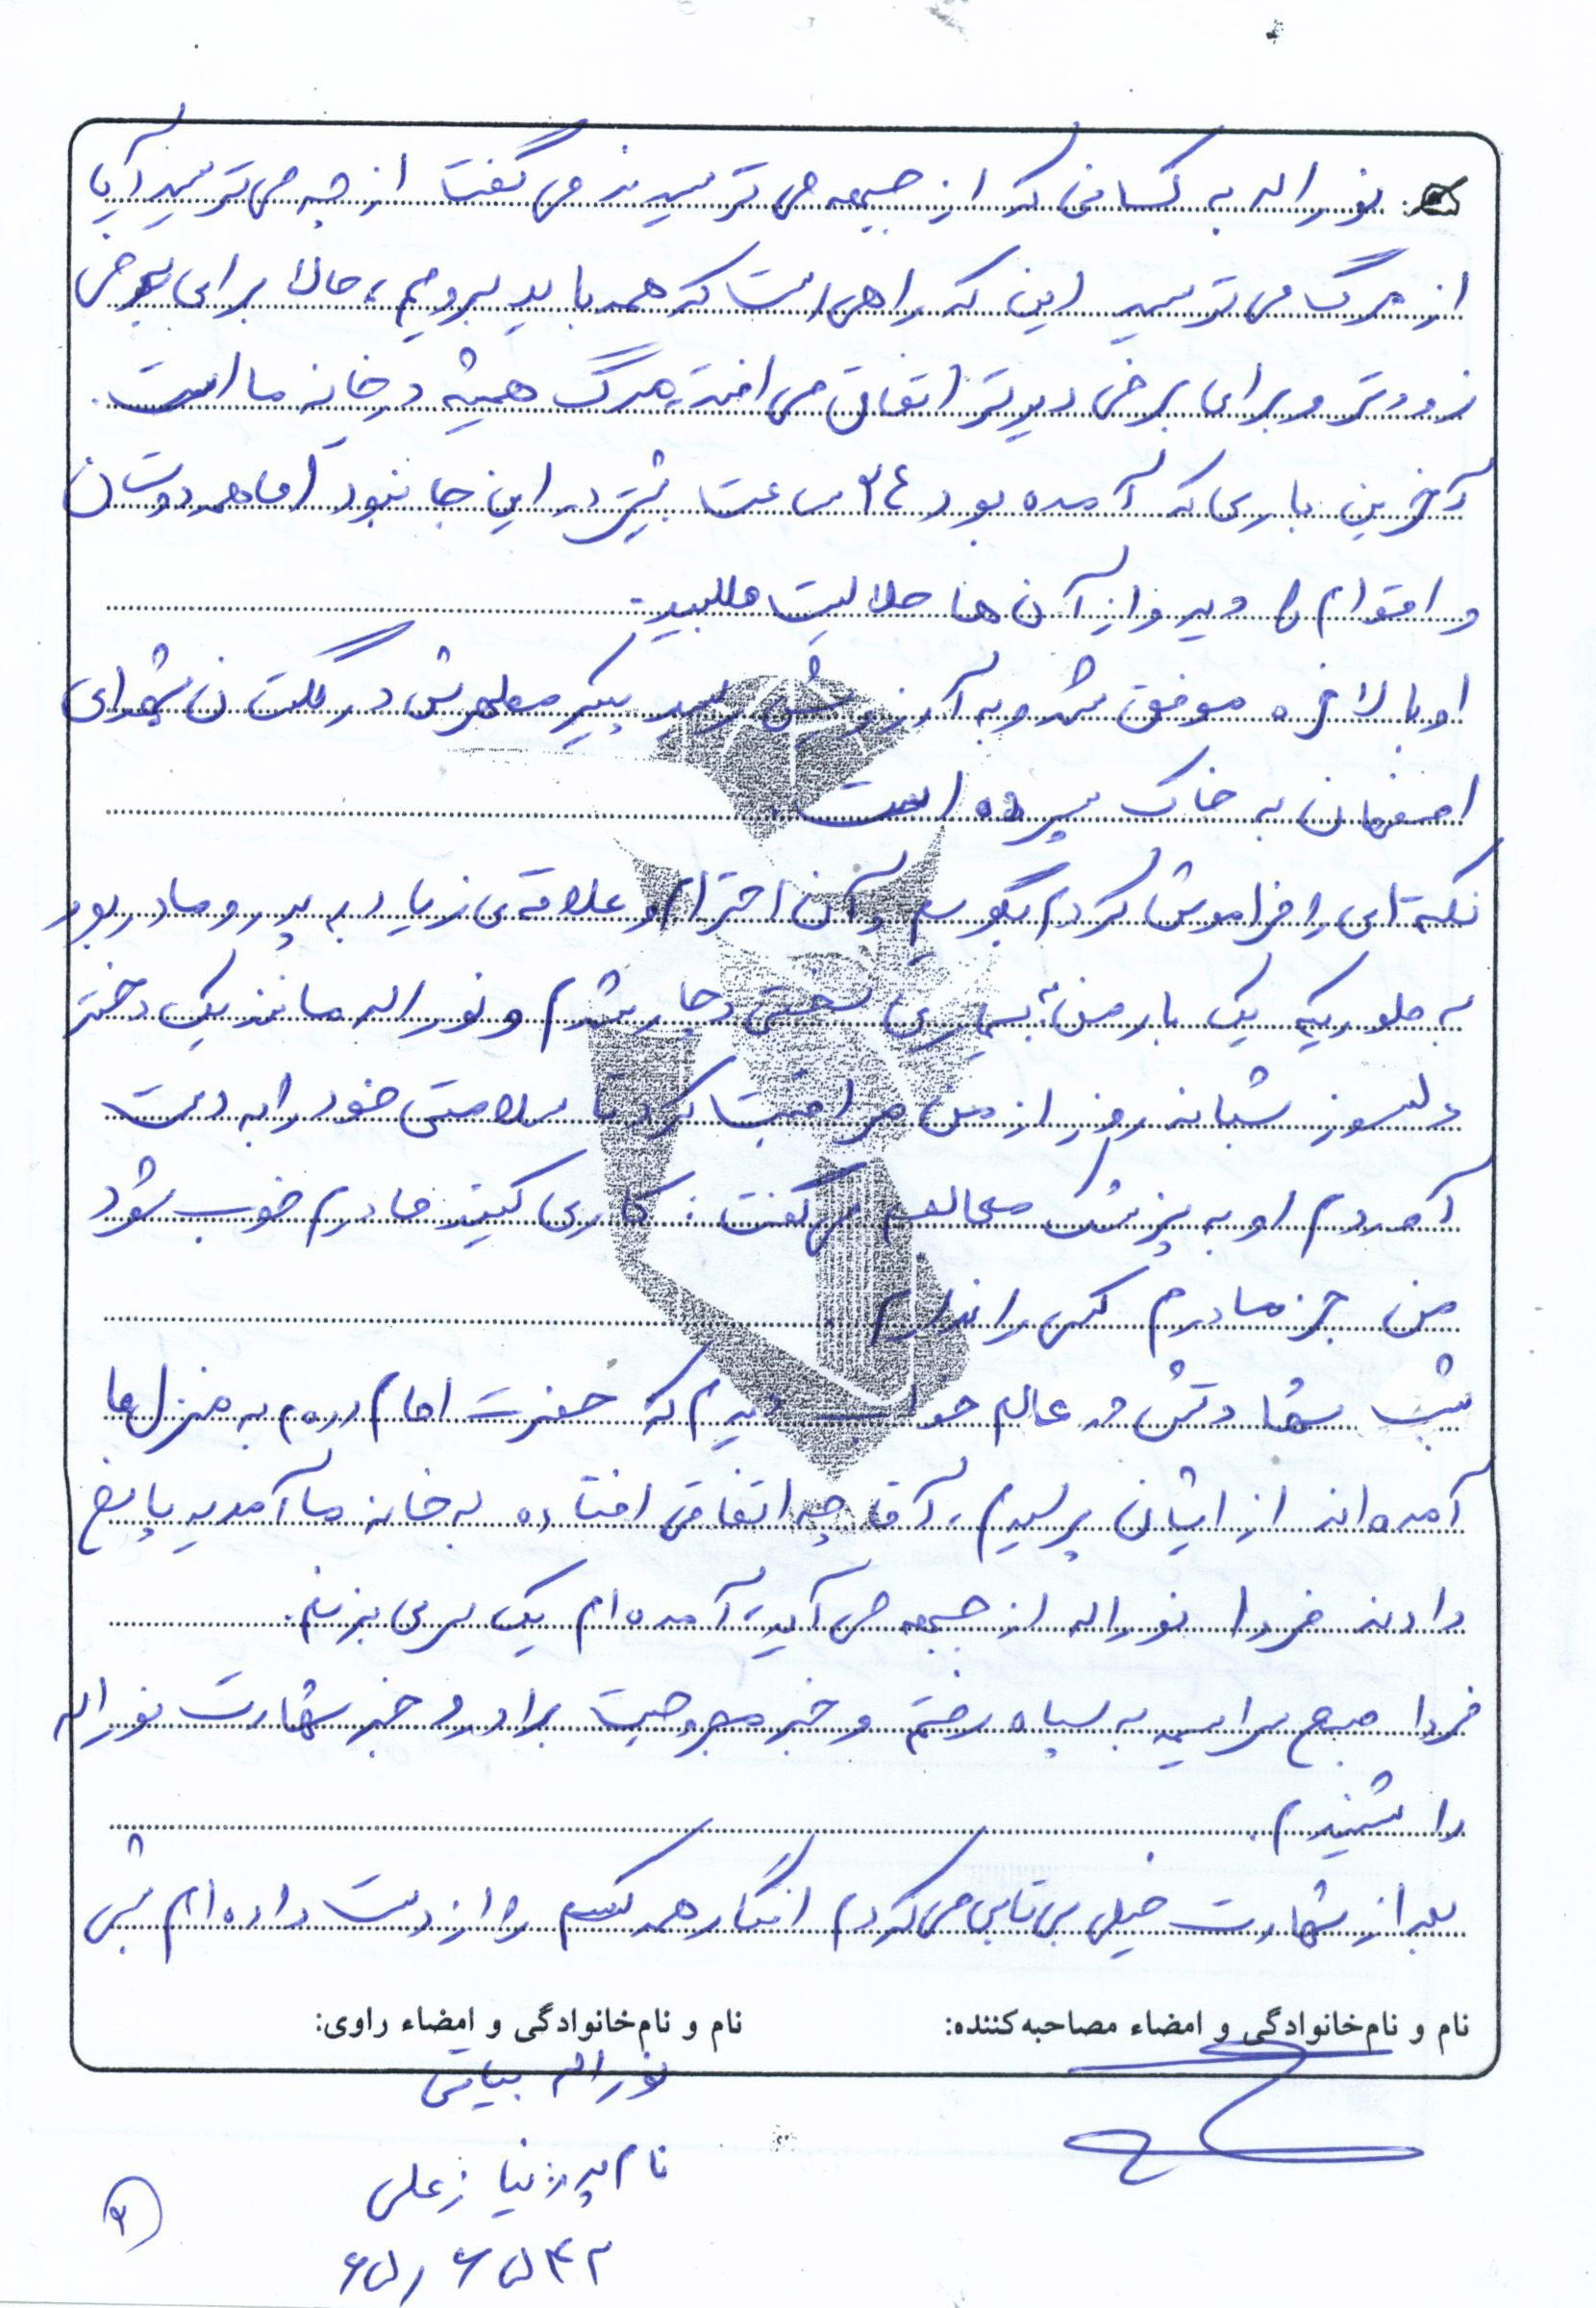 نوراله به کسانی که از جبهه می ترسیدند می گفت از چه می ترسید آیا
از مرگ می ترسید این که راهی است که همه باید برویم، حالا برای برخی
زودتر و برای برخی دیرتر اتفاق می افتد، مرگ همیشه در خانه ما است.
آخرین باری که آمده بود ۲۴ ساعت بیشتر در این جا نبود اما همه دوستان
و اقوام را دید و از آن ها حلالیت طلبید.
او بالاخره موفق شد و به آرزویش رسید پیکر مطهرش در گلستان شهدای
اصفهان به خاک سپرده است.
نکته ای را فراموش کردم بگویم و آن احترام و علاقه ی زیاد به پدر و مادر بود
به طوریکه یک بار من بیماری سختی دچار شدم و نوراله مانند یک دختر
دلسوز شبانه روز از من مراقبت کرد تا سلامتی خود را به دست
آوردم او به پزشک معالجم می گفت: کاری کنید مادرم خوب شود
من جز مادرم کسی را ندارم.
شب شهادتش در عالم خواب دیدم که حضرت امام (ره) به منزل ما
آمده اند از ایشان پرسیدم، آقا چه اتفاقی افتاده به خانه ما آمدید پاسخ
دادند فردا نوراله از جبهه می آید، آمده ام یک سری بزنم.
فردا صبح سراسیمه به سپاه رفتم و خبر مجروحیت برادر و خبر شهادت نوراله
را شنیدم.
بعد از شهادت خیلی بی تابی می کردم انگار همه کسم را از دست داده ام شبی
نام و نام‌خانوادگی و امضاء مصاحبه‌کننده: نام و نام‌خانوادگی و امضاء راوی:
نوراله بیاتی
نام پدر: نیازعلی
۶۵/۶۵۴۲
۲